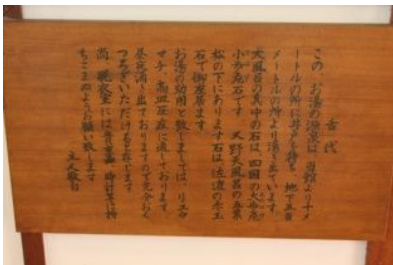 古代
この、お湯の源泉は、当館より十メ
ートルの所に井戸を持ち、地下五百
メートルの所より湧き出ています
大風呂の真中の石は、四国の大歩危
小歩危石です。又野天風呂の五葉
松の下にあります石は佐渡の赤玉
石で御座居ます
お湯の効用と致しましては、リュウ
マチ、高血圧症に適しております。
昼夜湧き出ておりますので充分おく
つろぎいただけると存じます
尚、脱衣室には貴重品、時計等は持
ちこまぬようお願い致します
主人敬白